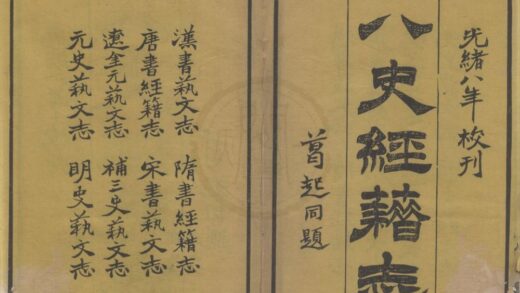 光緒八年校刊
八史經籍志
葛起同題
漢書藝文志　隋書經籍志
唐書經籍志　宋書藝文志
遼金元藝文志　補三史藝文志
元史藝文志　明史藝文志